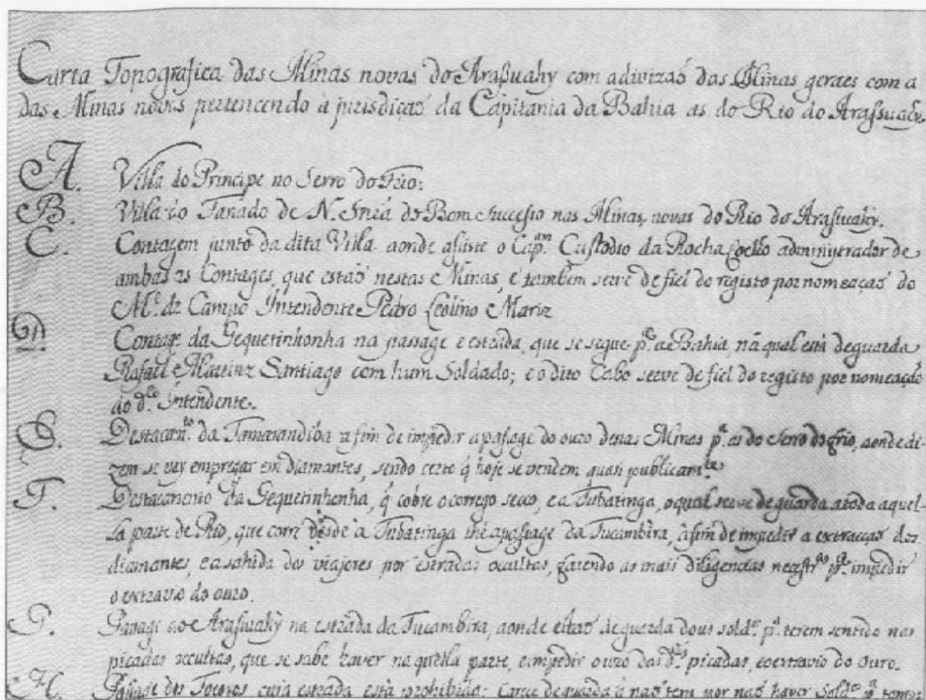 Carta Topografica das Minas novas do Arassuahy com a divizaõ das Minas geraes com a
das Minas novas pertencendo à jurisdiçaõ da Capitania da Bahia as do Rio do Arassuahy
A. Villa do Principe no Serro do Frio:
B. Villa do Fanado de N. Snra do Bom Sucesso nas Minas novas do Rio do Arassuahy.
C. Contagem junto da dita Villa aonde assiste o Cap.am Custodio da Rocha Coelho administrador de
ambas as Contages, que estaõ nestas Minas, e também serve de fiel do registo por nomeaçaõ do
M.e de Campo Intendente Pedro Leolino Mariz
D. Contage da Gequetinhonha na passage e estrada, que se segue p.a a Bahia, na qual está de guarda
Rafael Martinz Santiago com hum Soldado; e o dito Cabo serve de fiel do registo por nomeaçaõ
do d.o Intendente.
E. Destacam.to da Tamarandiba afim de impedir a passage do ouro destas Minas p.a as do Serro do frio, aonde di-
zem se vay empregar em diamantes, sendo certo q̃ hoje se vendem quasi publicam.te
F. Destacamento da Gequetinhonha, q̃ cobre o corrego seco, e a Tubatinga, o qual serve de guarda a toda aquel-
la parte do Rio, que corre desde a Tubatinga thé a passage da Tucambira, a fim de impedir a extracçaõ dos
diamantes, e a sahida dos viajores por estradas ocultas, fazendo as mais diligencias necessr.as p.a impedir
o extravio do ouro.
G. Passage do Arassuahy na estrada da Tucambira, aonde estaõ de guarda dous sold.os p.a terem sentido nas
picadas occultas, que se sabe haver naquella parte, e impedir o uzo das d.as picadas, e o extravio do ouro.
H. Passage dos Tocoyos cuja estrada está prohibida: Carece de guarda e naõ tem por naõ haver Sold.os